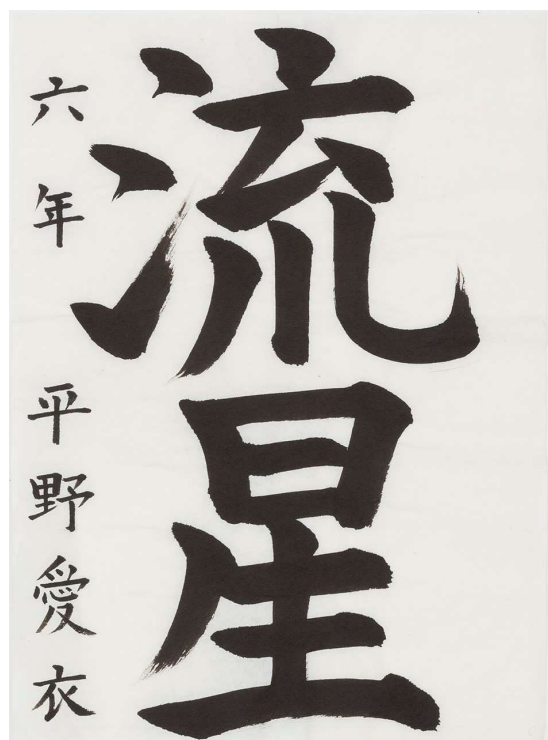 流星
六年 平野愛衣